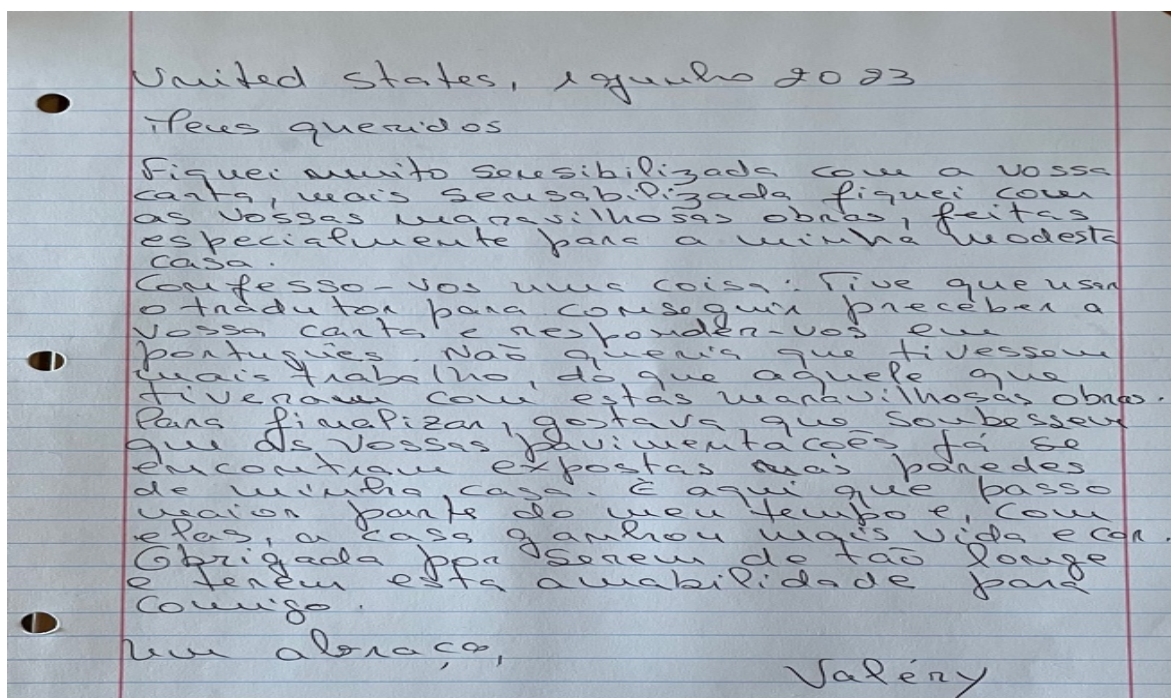 United states, 1 junho 2023
Meus queridos
Fiquei muito sensibilizada com a vossa
carta, mais sensabilizada fiquei com
as vossas maravilhosas obras, feitas
especialmente para a minha modesta
casa.
Confesso-vos uma coisa: Tive que usar
o tradutor para conseguir preceber a
vossa carta e responder-vos em
português. Não queria que tivessem
mais trabalho, do que aquele que
tiveram com estas maravilhosas obras.
Para finalizar, gostava que soubessem
que as vossas pavimentacoēs já se
encontram expostas nas paredes
de minha casa. É aqui que passo
maior parte do meu tempo e, com
elas, a casa ganhou mais vida e cor.
Obrigada por serem de tão longe
e terem esta amabilidade para
comigo.
um abraço,
Valéry